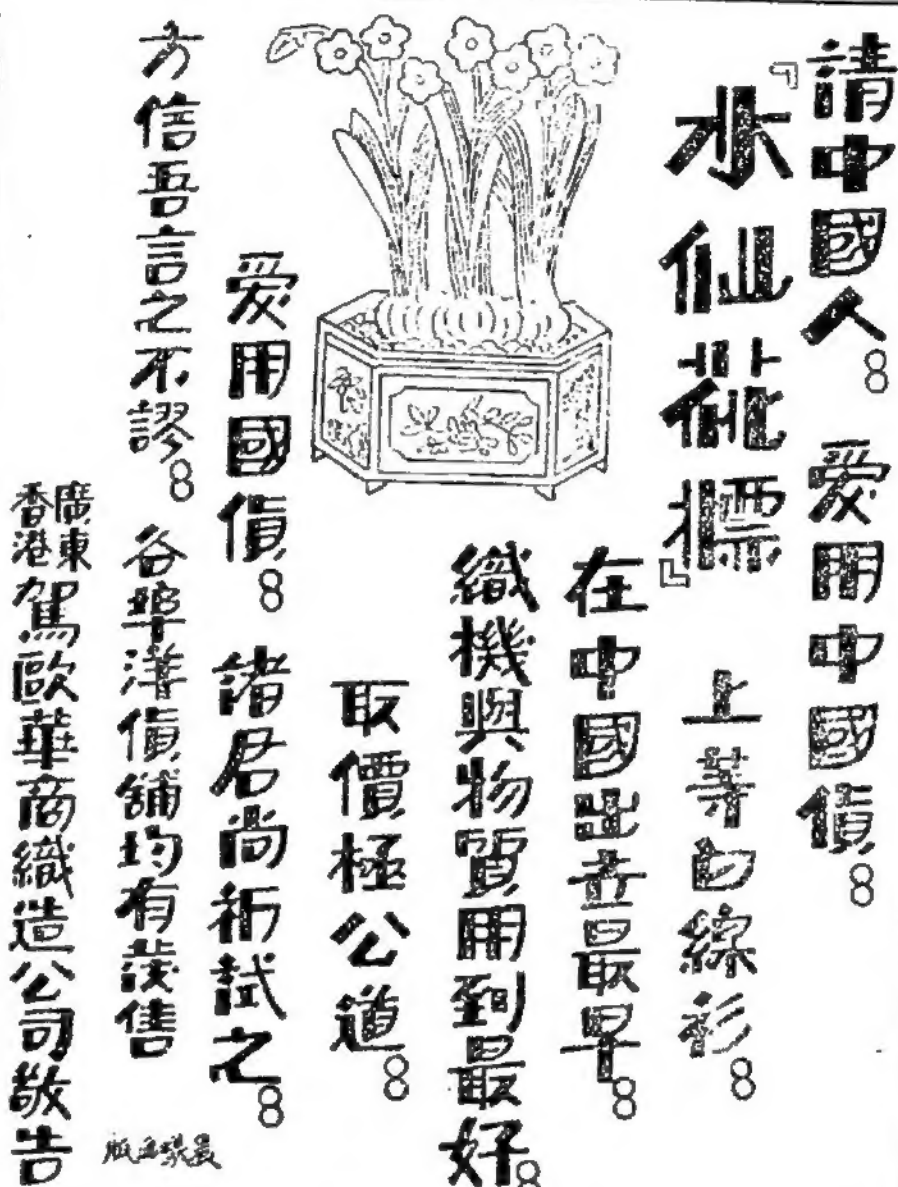 請中國人。愛用中國貨。
『水仙花標』上等白線衫。
在中國出世最早。
織機與物質用到最好。
取價極公道。
愛用國貨。諸君尚祈試之。
方信吾言之不謬。各埠洋貨舖均有發售
廣東
香港
駕歐華商織造公司敬告